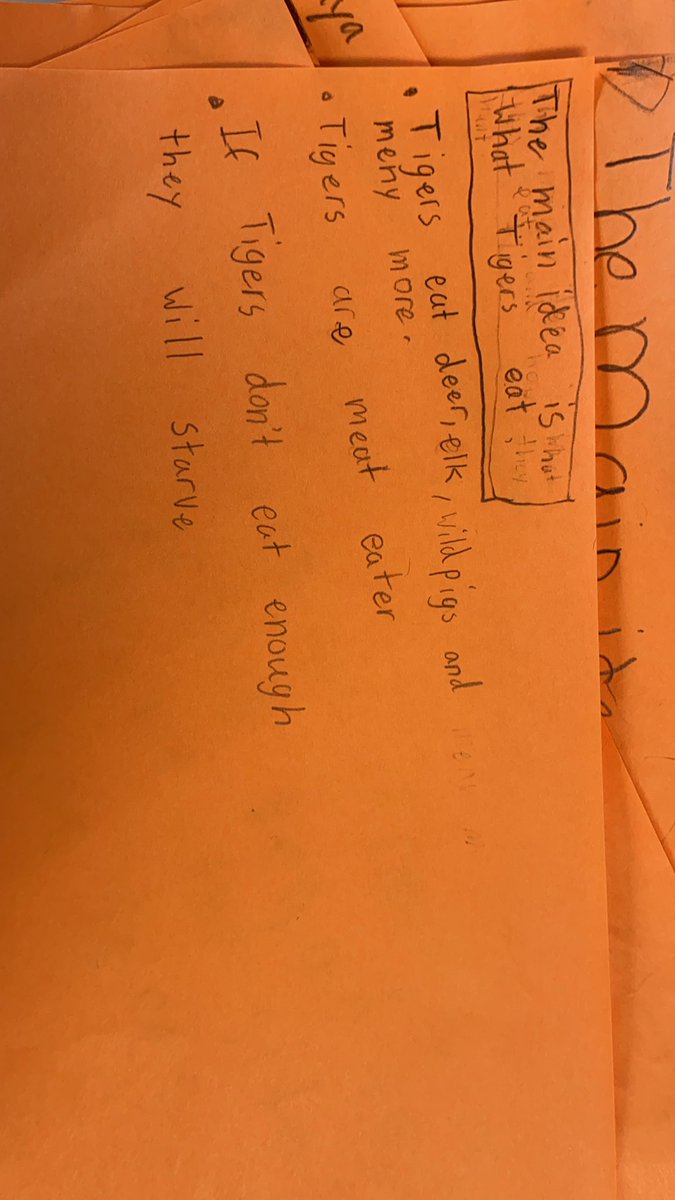 ya
The Main
The main idea is
what Tigers eat.
• Tigers eat deer, elk, wild pigs and
meny more.
• Tigers are meat eater
• If Tigers don't eat enough
they will starve